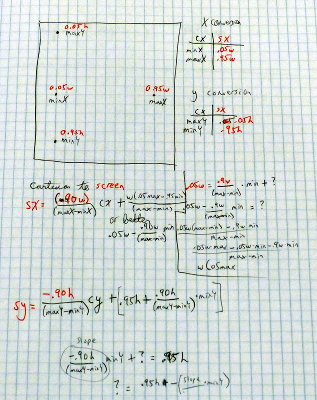 0.05h
maxY
0.05w
minX
0.95w
maxX
0.95h
minY
X Conversion
cx | sx
minX | .05w
maxX | .95w
y conversion
cx | sx
maxY | .05h
minY | .95h
Cartesian to screen
sx = (.90w)/(maxX-minX) cx + w(.05max-.95min)/(max-min)
or better
.05w - .90w/(max-min) min
.05w = .9w/(max-min) · min + ?
.05w - .9w/(max-min) min = ?
.05w(max-min) - .9w min
max-min
.05w max - .05w·min - .9w min
max-min
w(.05max
sy = -.90h/(maxY-minY) cy + [.95h + .90h/(maxY-minY) · minY]
slope
-.90h/(maxY-minY) minY + ? = .95h
? = .95h - (slope · minY)